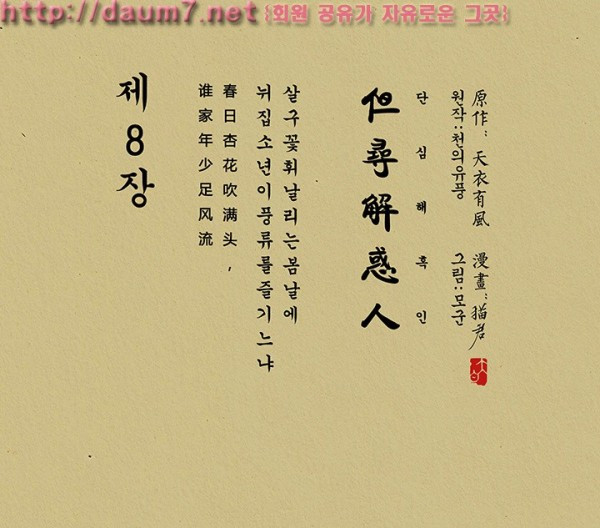 http://daum7.net {회원 공유가 자유로운 그곳}
原作：天衣有風 漫畫：猫君
원작::천의유풍 그림::모군
단심해혹인
但尋解惑人
살구꽃휘날리는봄날에
뉘집소년이풍류를즐기느냐
春日杏花吹满头,
谁家年少足风流
제8장